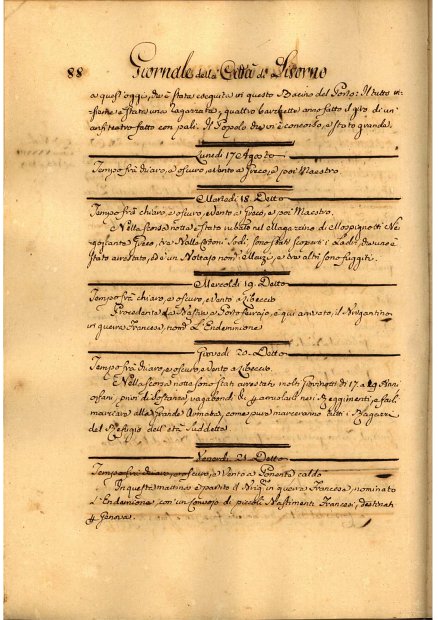 88 Giornale della Città di Livorno
a quest'oggi, che è stata eseguita in questo Bacino del Porto: Il tutto in-
sieme è stata una bagarrata, quattro barchette anno fatto il giro di un
anfiteatro fatto con pali. Il Popolo che vi è concorso, è stato grande.
Lunedi 17 Agosto
Tempo frà chiaro, e oscuro, e Vento a Greco, e poi Maestro.
Martedi 18. Detto
Tempo frà chiaro, e oscuro, e Vento a Greco, e poi Maestro.
Nella scorsa notte è stato rubato nel Magazzino di Mospignotti Ne-
goziante Greco, tra Nolla Sodi, sono stati scoperti i Ladri, che uno è
stato arrestato, ed è un Nottajo nom. Marzi, e tre altri sono fuggiti.
Mercoldi 19. Detto
Tempo frà chiaro, e oscuro, e Vento a Libeccio
Procedente da Bastia, e Portoferrajo, è qui arrivato, il Brigantino
in guerra Francese, nom.º L'Endemione
Giovedi 20. Detto
Tempo frà chiaro, e oscuro, e Vento a Libeccio.
Nella scorsa notte sono stati arrestati molti Giovinotti di 17. a 29 Anni
osiani, privi di sostanze, vagabondi di p arruolarli nei Reggimenti, e farli
marciare alla Grande Armata, come pure marceranno tutti i Ragazzi
del Refugio dell'età suddetta.
Venerdi 21. Detto
Tempo frà chiaro, e oscuro, e Vento a Ponente caldo
In questa mattina è partito il Brig.º in guerra Francese, nominato
L'Endemione con un Convojo di piccoli Bastimenti Francesi, destinati
p Genova.